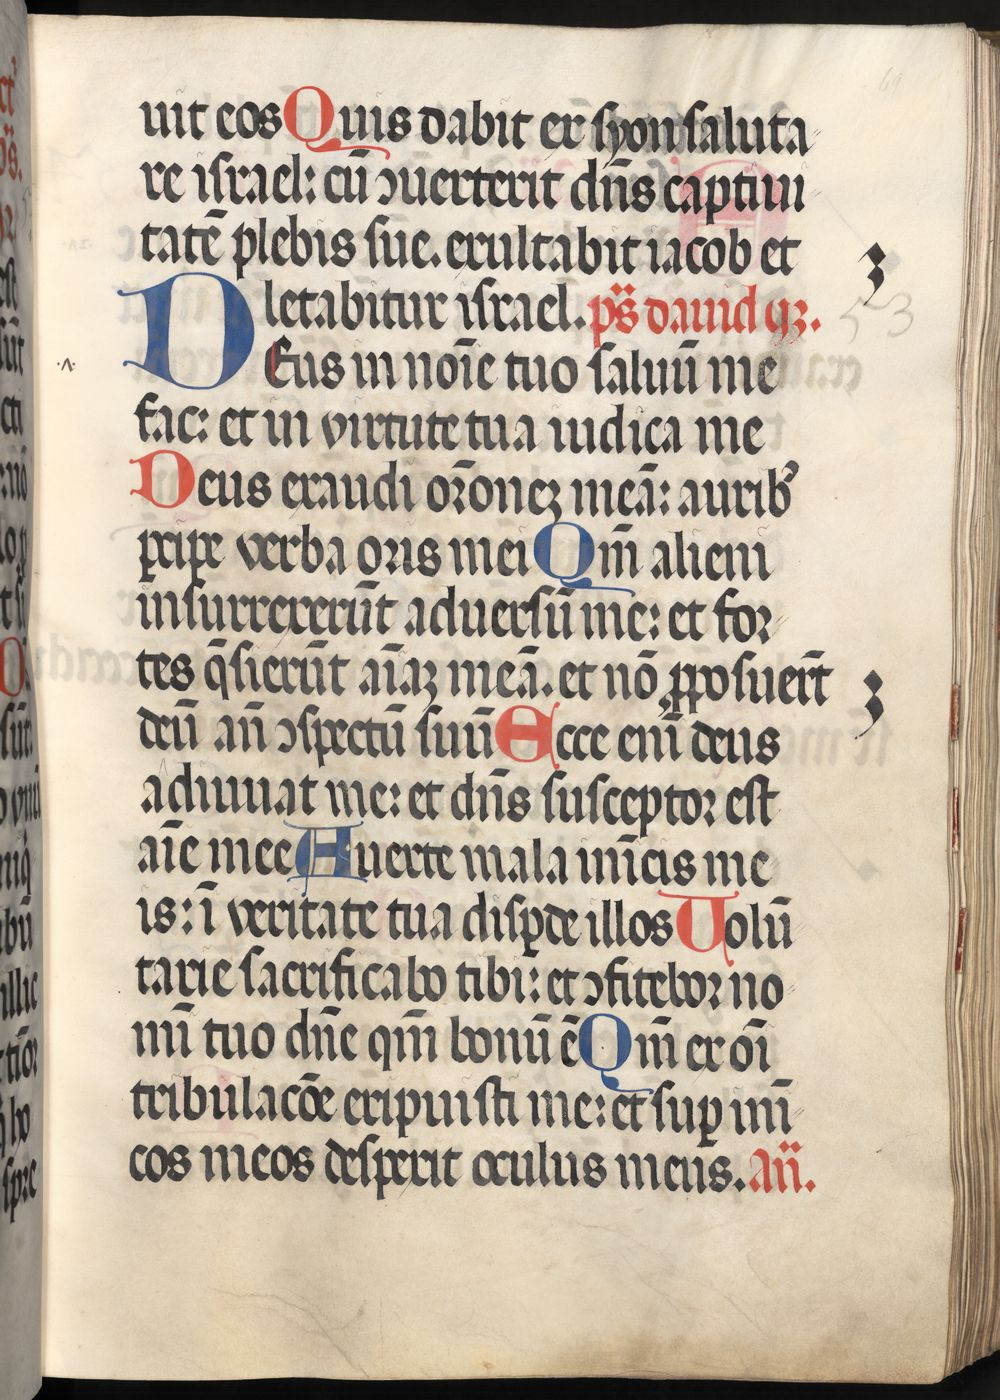 uit eos Quis dabit ex syon saluta
re israel: cū ↄuerterit dn̄s captiui
tatē plebis sue. exultabit iacob et
letabitur israel. ps̄ dauid qꝫ.
DEus in noīe tuo saluū me
fac: et in virtute tua iudica me
Deus exaudi orōneꝫ meā: aurib᾽
ꝑcipe verba oris mei Qm̄ alieni
insurrexerūt aduersū me: et for
tes q̄sierūt aīaꝫ meā. et nō ꝓposuerūt
deū an̄ ↄspectū suū Ecce enī deus
adiuuat me: et dn̄s susceptor est
aīe mee Auerte mala inīcis me
is: ī veritate tua dispde illos Uolū
tarie sacrificabo tibi: et ↄfitebor no
mī tuo dn̄e qm̄ bonū ē Qm̄ ex oī
tribulacōe eripuisti me: et suꝑ inī
cos meos despexit oculus meus. Añ.
53
69